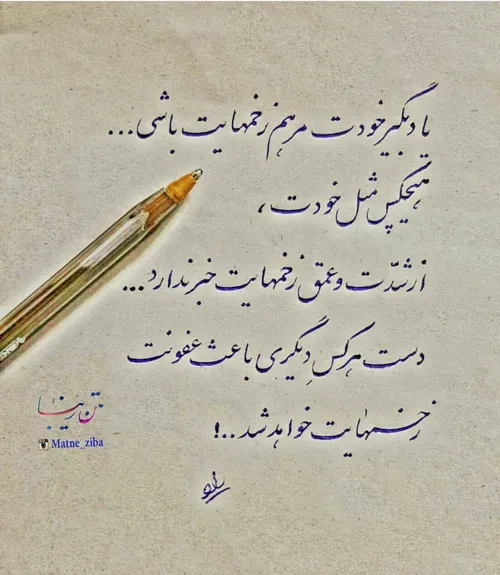 یاد بگیر خودت مرهم زخمهایت باشی...
هیچکس مثل خودت،
از شدّت و عمق زخمهایت خبر ندارد...
دست هرکسِ دیگری باعث عفونت
زخمهایت خواهد شد..!
متن زیبا
Matne_ziba